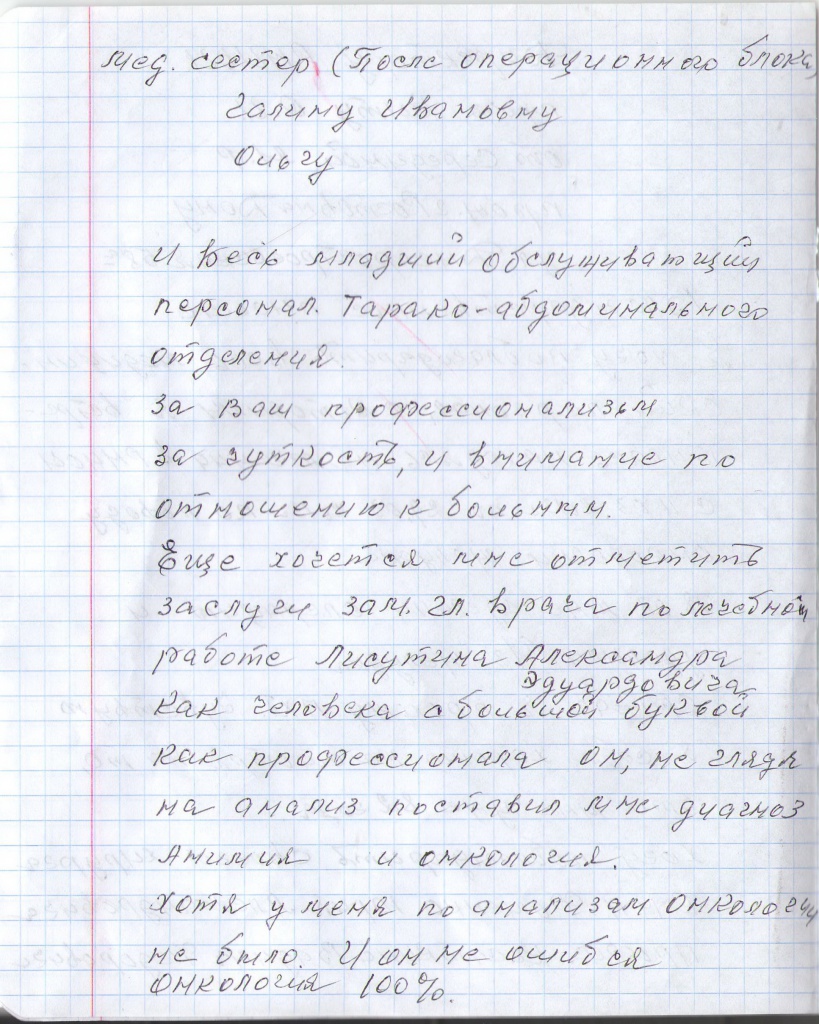 мед. сестер (После операционного блока)
Галину Ивановну
Ольгу
и весь младший обслуживатщий
персонал. Тарако-абдоминального
отделения.
за Ваш профессионализьм
за чуткость, и внимание по
отношению к больным.
Еще хочется мне отметить
заслуги зам. гл. врача по лечебной
работе Лисутина Александра
Эдуардовича
Как человека с большой буквой
как профессионала он, не глядя
на анализ поставил мне диагноз
Анимия и онкология.
хотя у меня по анализам онкологии
не было. И он не ошибся
онкология 100%.